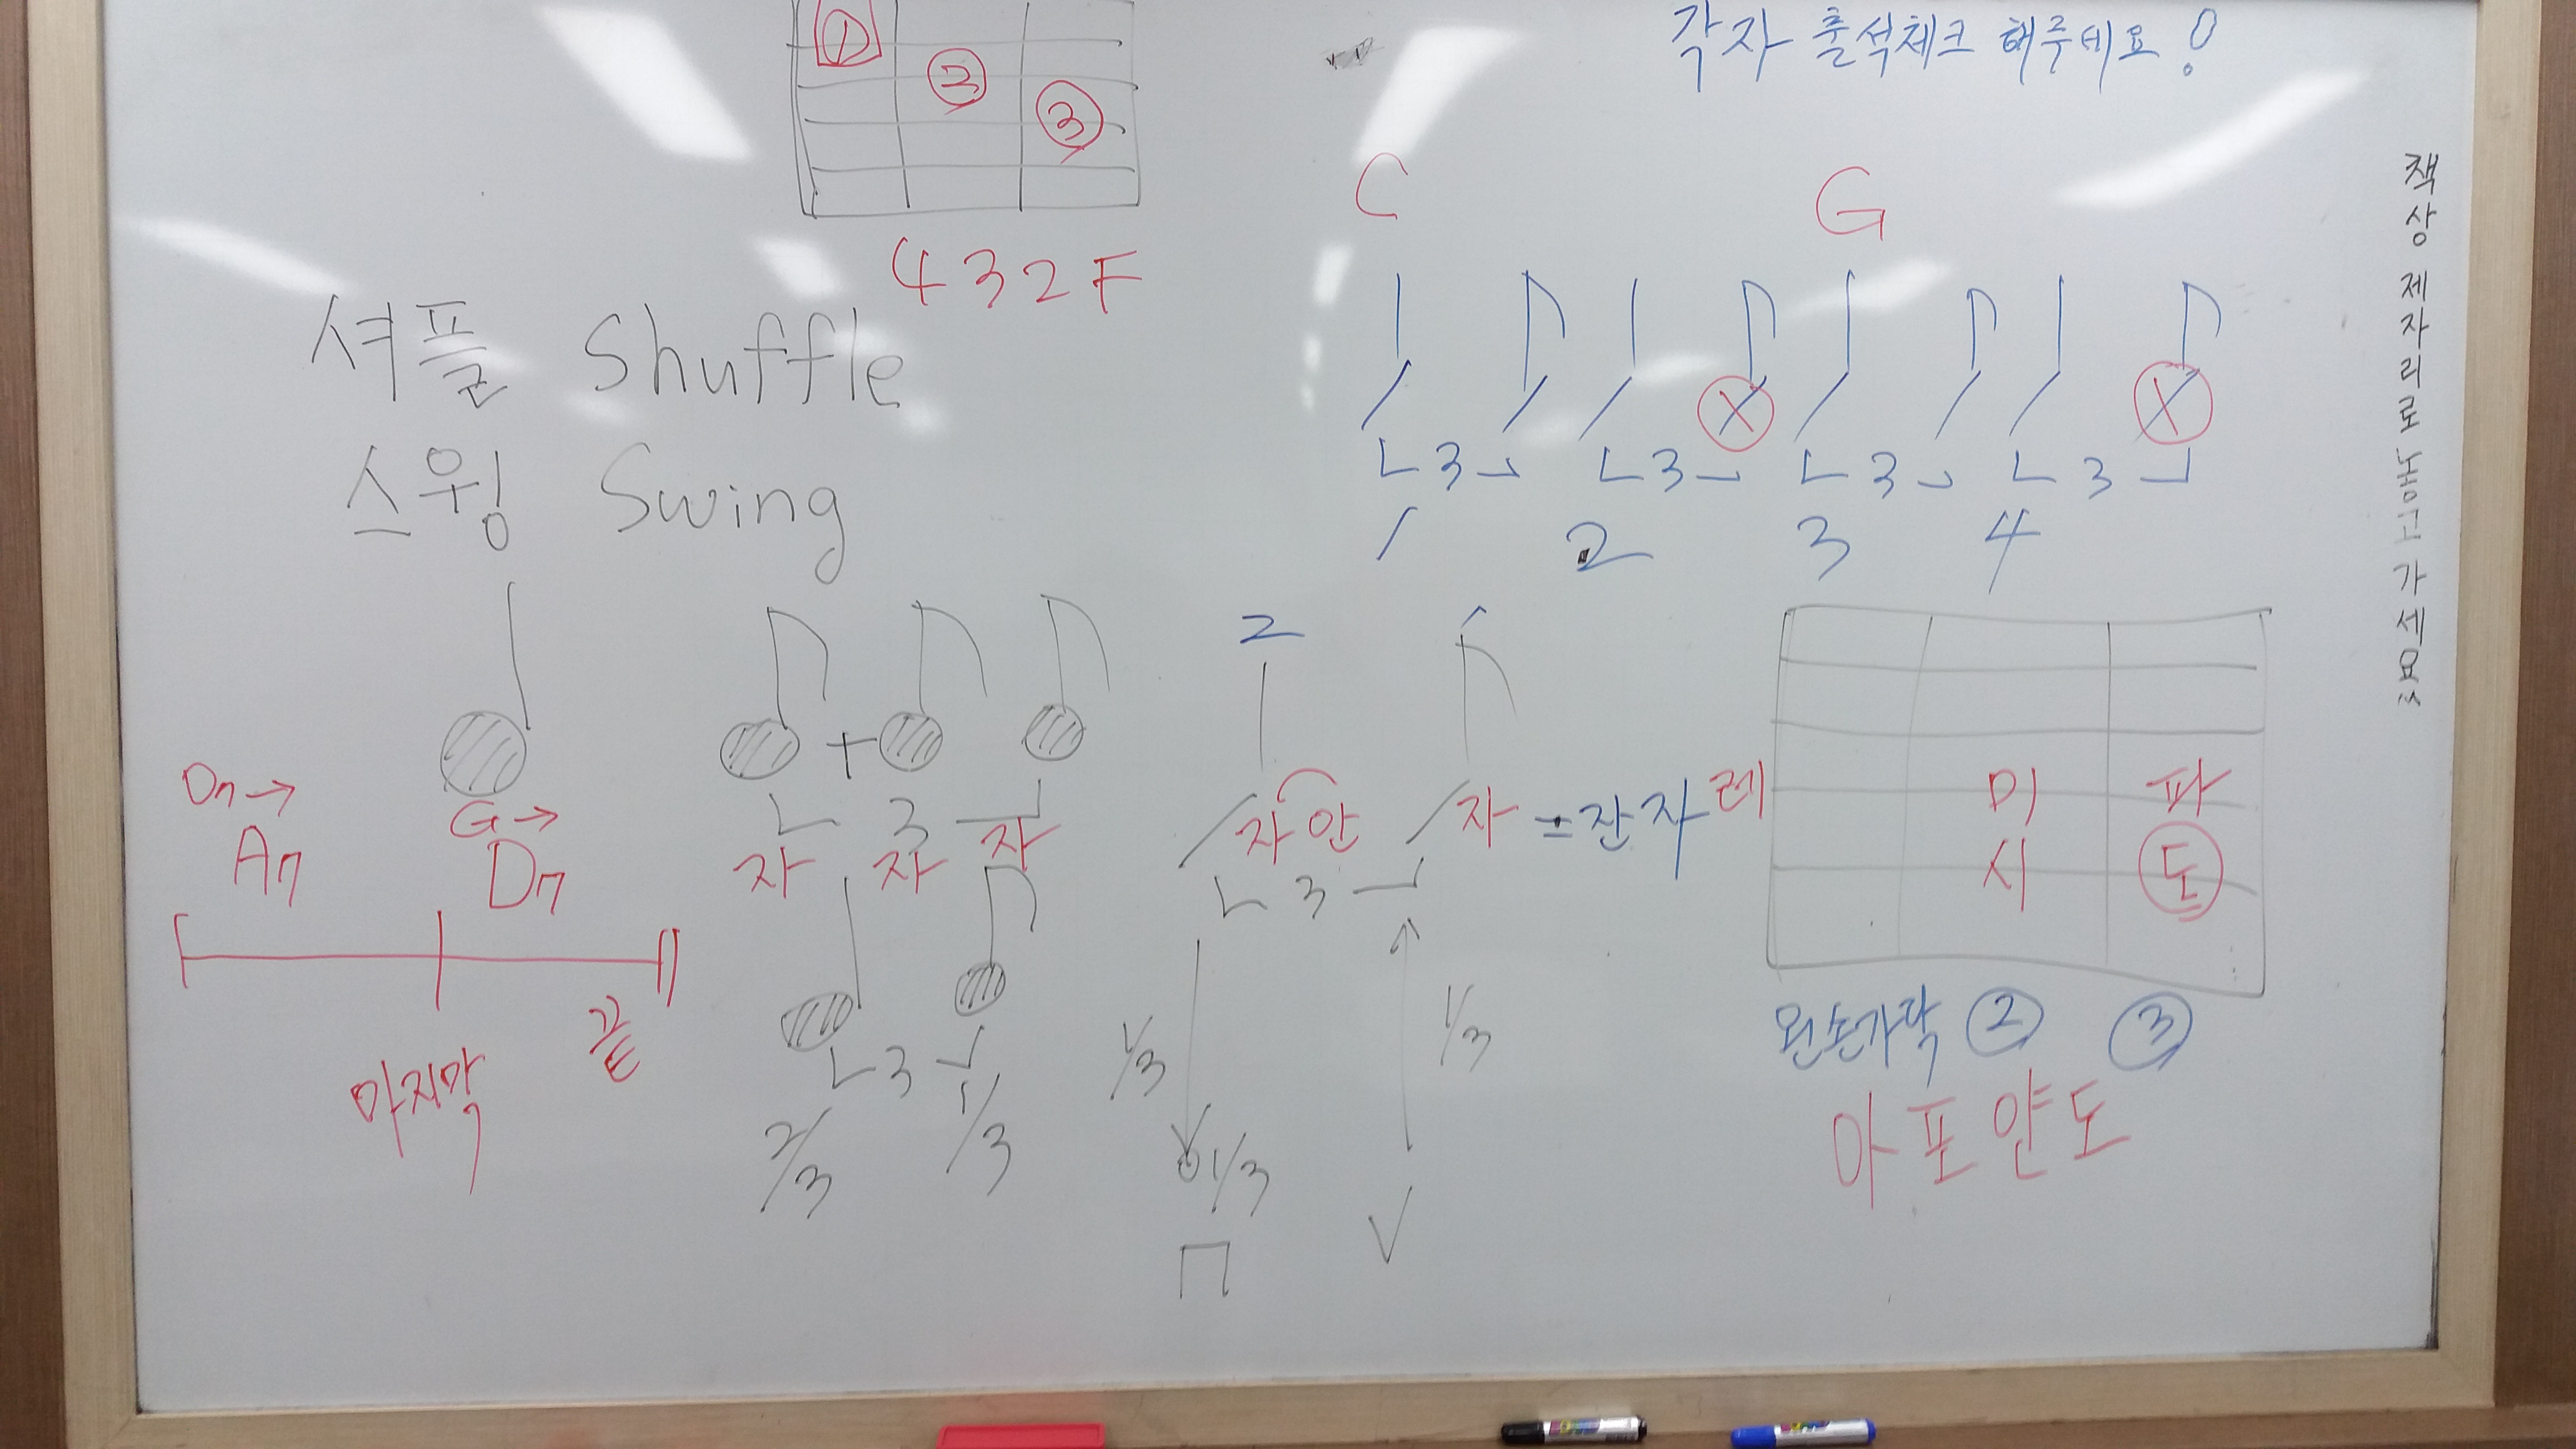 각자 출석체크 해주세요!
① ② ③
432F
셔플 Shuffle
스윙 Swing
C G
X X
3 3 3 3
1 2 3 4
책상 제자리로 놓고 가세요
D7→ A7
G→ D7
마지막
끝
+
3
자 자 자
3
2/3 1/3
2 1
자안 자 = 잔자
3
1/3 1/3 1/3
레 미 파
시 도
왼손가락 ② ③
아포얀도